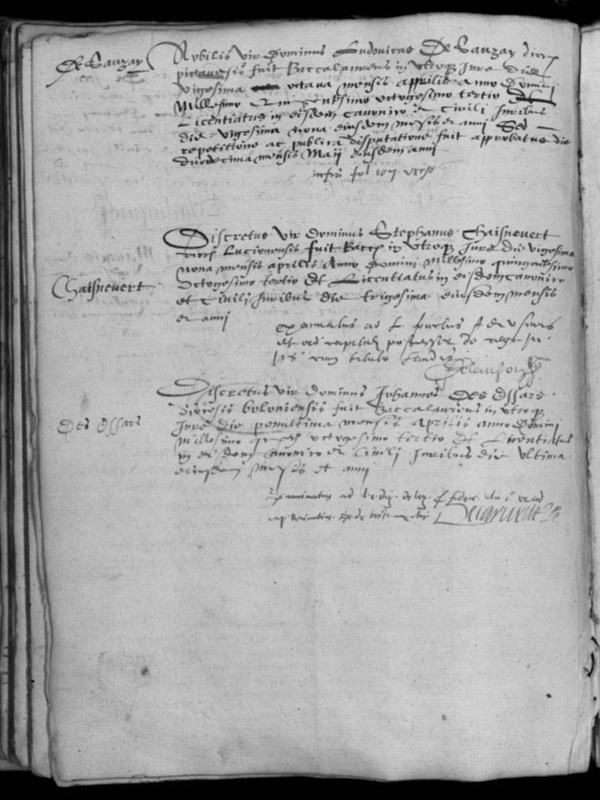 De Sauzay
Nobilis vir dominus Ludovicus De Sauzay dioc
pictavesis fuit Baccalaureus in utroq Jure die
vigesima octava mensis aprilis anno domini
Millesimo quingentesimo octogesimo tertio Et
Licentiatus in eisdem canonico et Civili Juribus
die vigesima nona eiusdem mensis et anni Sed
repetitione ac publica disputatione fuit approbatus die
duodecima mensis Maij eiusdem anni
infra fol 107 verso
Chaisnevert
Discretus vir dominus Stephanus Chaisnevert
dioc Lucionensis fuit Bacc in utroq Jure die vigesima
nona mensis aprilis Anno domini Millesimo quingentesimo
octogesimo tertio Et Licentiatus in eisdem canonico
et Civili Juribus die trigesima eiusdem mensis
et anni
ad L
Des Ossars
Discretus vir dominus Johannes Des Ossars
diocesis boloniensis fuit Baccalaureus in utroq
Jure die penultima mensis aprilis anno domini
millesimo quingen octogesimo tertio Et Licentiatus
in eisdem canonico et Civili Juribus die ultima
eiusdem mensis et anni
Examinatus ad